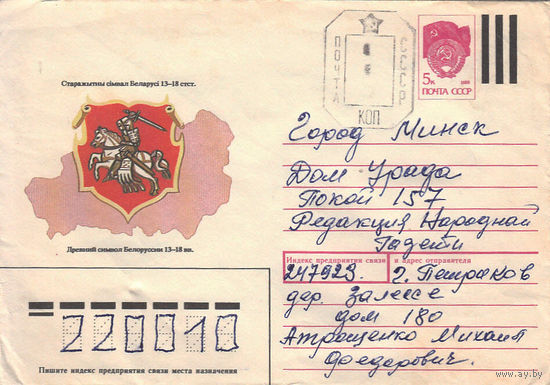 Старажытны сімвал Беларусі 13–18 стст.
Древний символ Белоруссии 13–18 вв.
ПОЧТА
СССР
КОП
5к
1988
ПОЧТА СССР
Город Минск
Дом Урада
Покой 157
Редакция Народнай
Газеты
Индекс предприятия связи и адрес отправителя
247923. г. Петриков
дер. Залессе
дом 180
Атрощенко Михаил
Федерович.
220010
Пишите индекс предприятия связи места назначения
www.ay.by